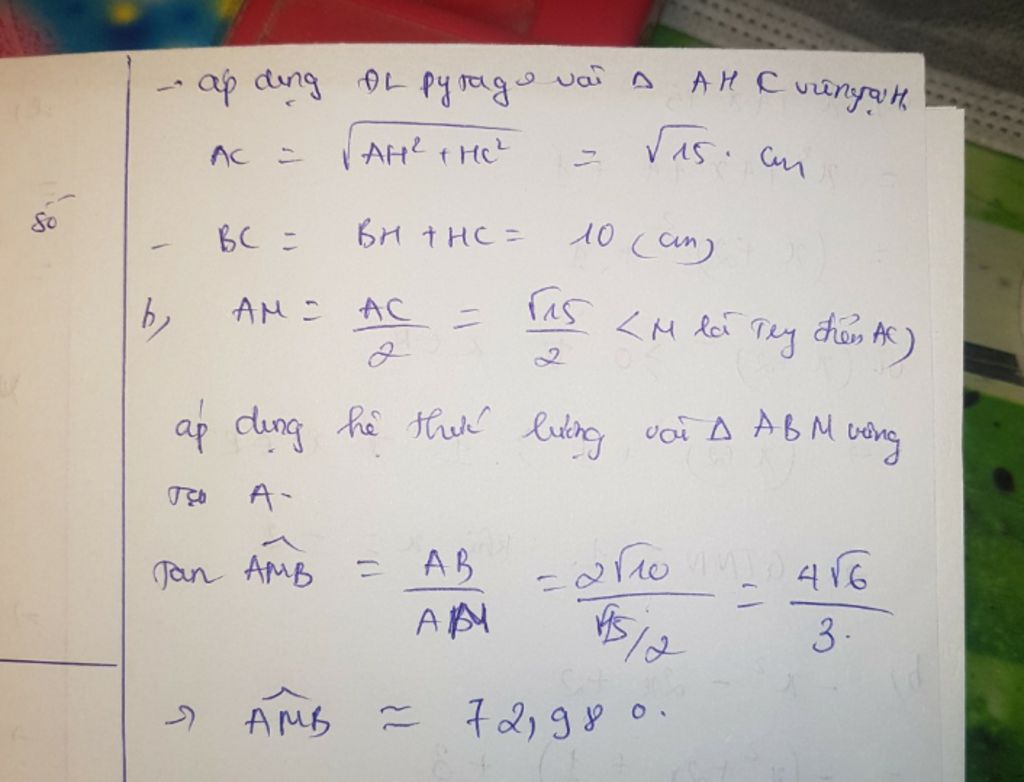 số
→ áp dụng ĐL pytago với Δ AHC vuông tại H.
AC = √(AH² + HC²) = √15. cm
- BC = BH + HC = 10 (cm)
b, AM = AC/2 = √15/2 < M là Trung điểm AC)
áp dụng hệ thức lượng với Δ ABM vuông
tại A.
Tan AMB = AB/AM = 2√10/(√15/2) = 4√6/3.
→ AMB ≈ 72,98 o.